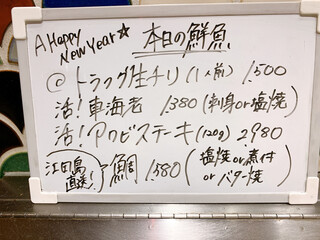 A Happy New Year☆
本日の鮮魚
@トラフグ生チリ(1人前) 1,500
活！車海老 1,380(刺身or塩焼)
活！アワビステーキ(120g) 2,980
江田島直送！ 鯛 1,580(塩焼or煮付orバター焼)